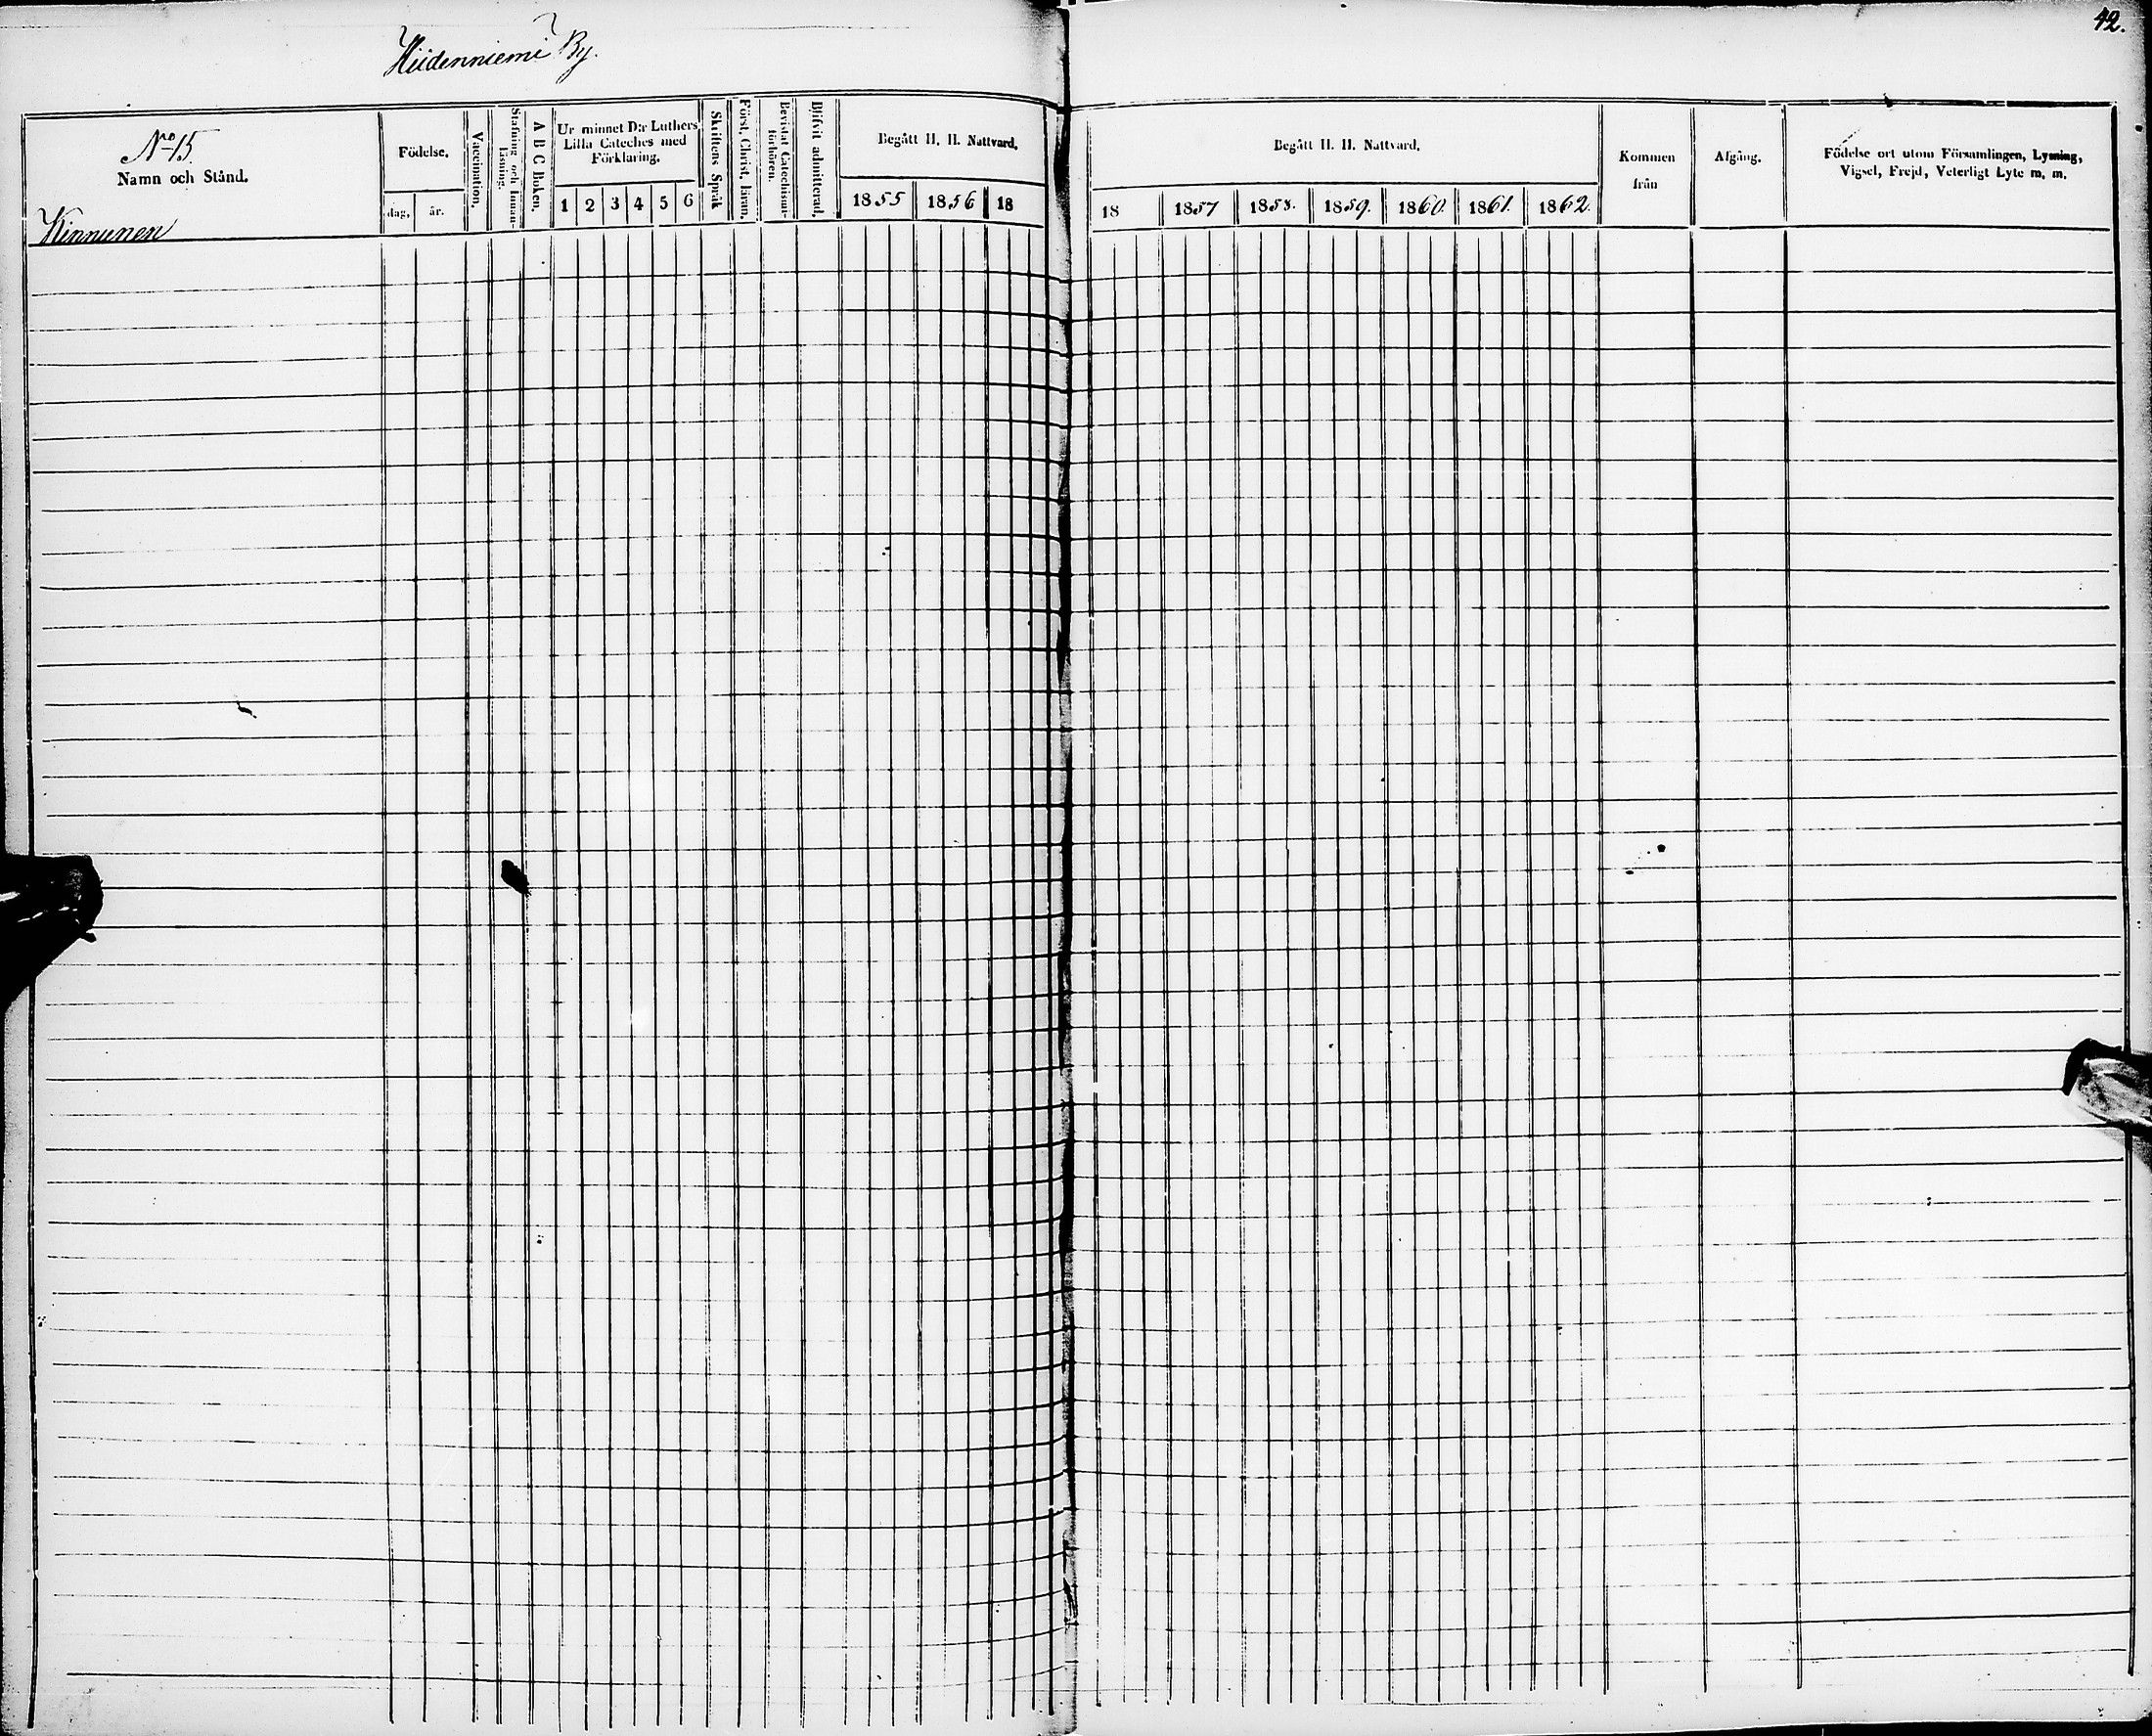 Hiidenniemi By.
42.
No 15.
Namn och Stånd.
Kinnunen
Födelse.
dag.
år.
Vaccination.
Stafning och Innan-
läsning.
A B C Boken.
Ur minnet D:r Luthers
Lilla Cateches med
Förklaring.
1 2 3 4 5 6
Skriftens Språk
Först. Christ. läran.
Bevistat Catechismi-
förhören.
Blifvit admitterad.
Begått H. H. Nattvard.
1855 1856 18
Begått H. H. Nattvard.
18 1857 1858. 1859. 1860. 1861. 1862.
Kommen
från
Afgång.
Födelse ort utom Församlingen, Lysning,
Vigsel, Frejd, Veterligt Lyte m. m.